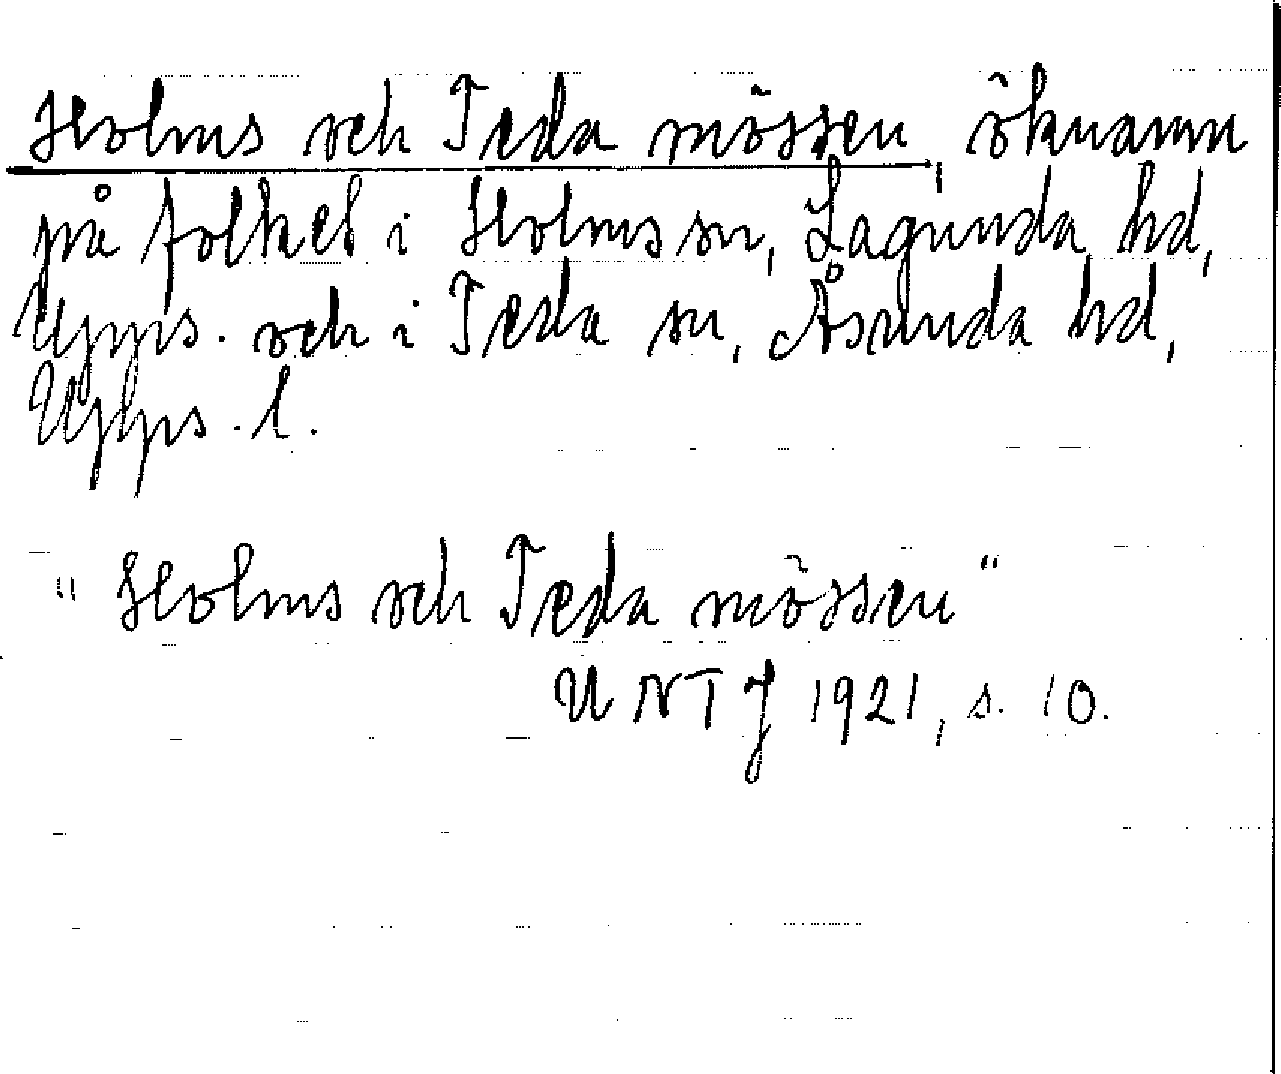 Holms och Teda mössen, öknamn
på folket i Holms sn, Lagunda hd,
Upps. och i Teda sn, Åsunda hd,
Upps. l.
"Holms och Teda mössen"
UNTJ 1921, s. 10.